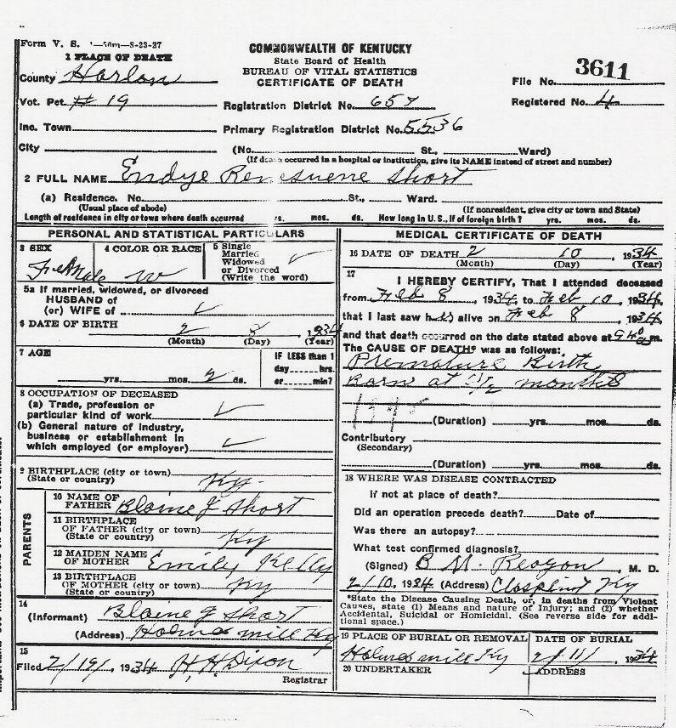 Form V. S. 1—50m—8-23-27
COMMONWEALTH OF KENTUCKY
State Board of Health
BUREAU OF VITAL STATISTICS
CERTIFICATE OF DEATH
1 PLACE OF DEATH
County Harlan
File No. 3611
Vot. Pct. # 19
Registration District No. 657
Registered No. 4
Inc. Town
Primary Registration District No. 5536
City (No. St., Ward)
(If death occurred in a hospital or institution, give its NAME instead of street and number)
2 FULL NAME Short
(a) Residence. No. St., Ward.
(Usual place of abode) (If nonresident, give city or town and State)
Length of residence in city or town where death occurred yrs. mos. ds. How long in U. S., if of foreign birth? yrs. mos. ds.
PERSONAL AND STATISTICAL PARTICULARS
3 SEX Female
4 COLOR OR RACE W
5 Single
Married
Widowed
or Divorced
(Write the word)
5a If married, widowed, or divorced
HUSBAND of
(or) WIFE of
6 DATE OF BIRTH 2 8 1934
(Month) (Day) (Year)
7 AGE
yrs. mos. 2 ds.
IF LESS than 1
day hrs.
or min?
8 OCCUPATION OF DECEASED
(a) Trade, profession or
particular kind of work
(b) General nature of industry,
business or establishment in
which employed (or employer)
9 BIRTHPLACE (city or town)
(State or country) Ky.
PARENTS
10 NAME OF
FATHER Blaine J Short
11 BIRTHPLACE
OF FATHER (city or town)
(State or country) Ky
12 MAIDEN NAME
OF MOTHER Emily Kelly
13 BIRTHPLACE
OF MOTHER (city or town)
(State or country) Ky
14
(Informant) Blaine J Short
(Address) Holmes mill Ky
15
Filed 2/19/, 1934 H. H. Dixon
Registrar
MEDICAL CERTIFICATE OF DEATH
16 DATE OF DEATH 2 10, 1934
(Month) (Day) (Year)
17
I HEREBY CERTIFY, That I attended deceased
from Feb 8, 1934, to Feb 10, 1934,
that I last saw alive on Feb 8, 1934
and that death occurred on the date stated above at m.
The CAUSE OF DEATH* was as follows:
Premature Birth
Born at months
(Duration) yrs. mos. ds.
Contributory
(Secondary)
(Duration) yrs. mos. ds.
18 WHERE WAS DISEASE CONTRACTED
if not at place of death?
Did an operation precede death? Date of
Was there an autopsy?
What test confirmed diagnosis?
(Signed) B M. Reagon, M. D.
2/10, 1934 (Address) Closplint Ky
*State the Disease Causing Death, or, in deaths from Violent
Causes, state (1) Means and nature of Injury; and (2) whether
Accidental, Suicidal or Homicidal. (See reverse side for addi-
tional space.)
19 PLACE OF BURIAL OR REMOVAL DATE OF BURIAL
Holmes mill Ky 2/11/ 1934
20 UNDERTAKER ADDRESS